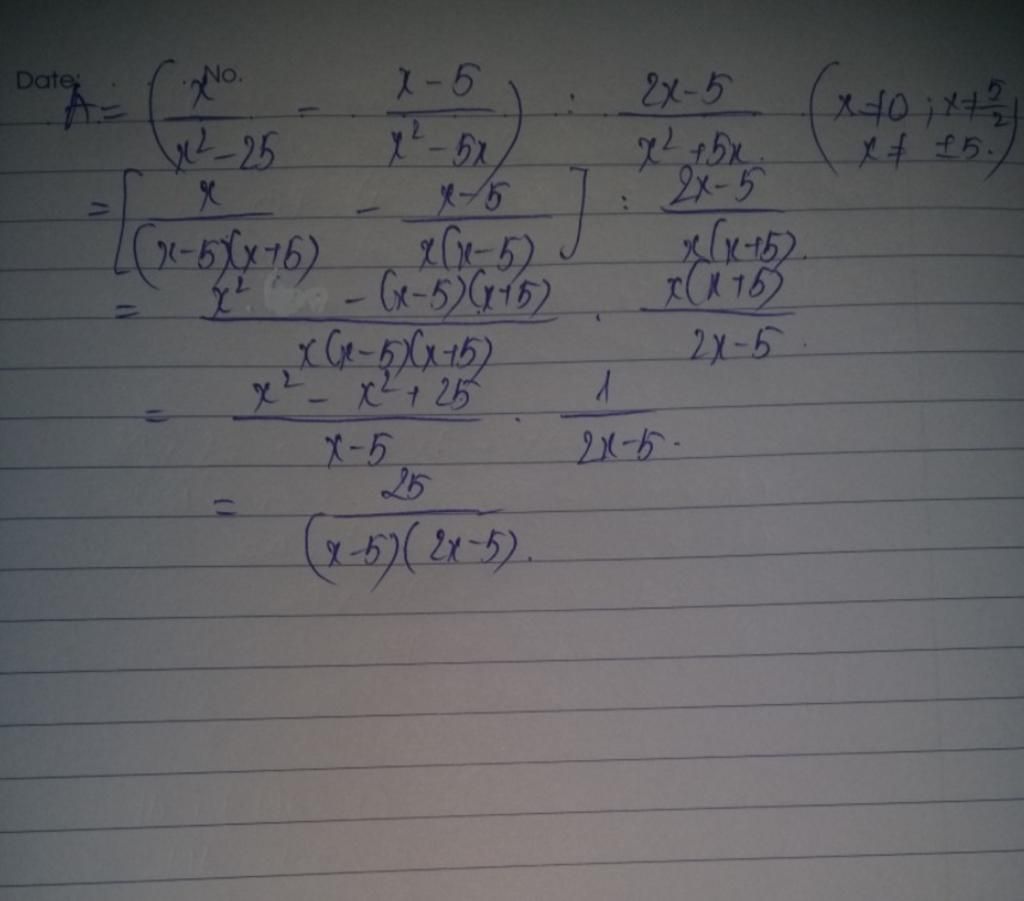 Date: No.
A = (x/(x² - 25) - (x - 5)/(x² - 5x)) : (2x - 5)/(x² + 5x) (x ≠ 0 ; x ≠ 5/2 x ≠ ±5.)
= [x/((x-5)(x+5)) - (x-5)/(x(x-5))] : (2x-5)/(x(x+5)).
= (x² - (x-5)(x+5))/(x(x-5)(x+5)) . (x(x+5))/(2x-5).
= (x² - x² + 25)/(x-5) . 1/(2x-5).
= 25/((x-5)(2x-5)).